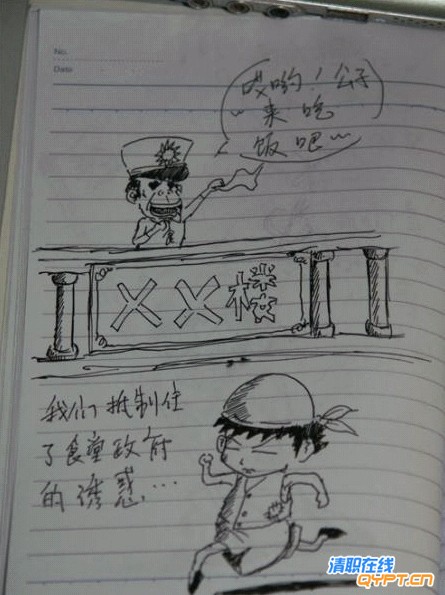 No.
Date
哎哟！公子
来吃
饭吧~
XX楼
我们抵制住
了食堂政府
的诱惑…
清职在线
QYPT.CN